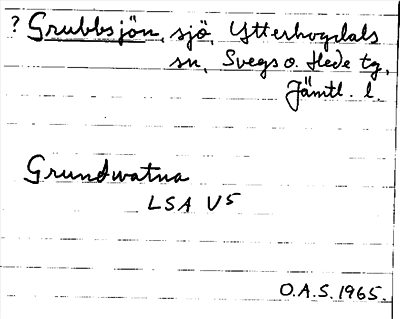 ? Grubbsjön, sjö, Ytterhogdals
sn, Svegs o. Hede tg,
Jämtl. l.
Grundwatna
LSA V5
O.A.S. 1965.